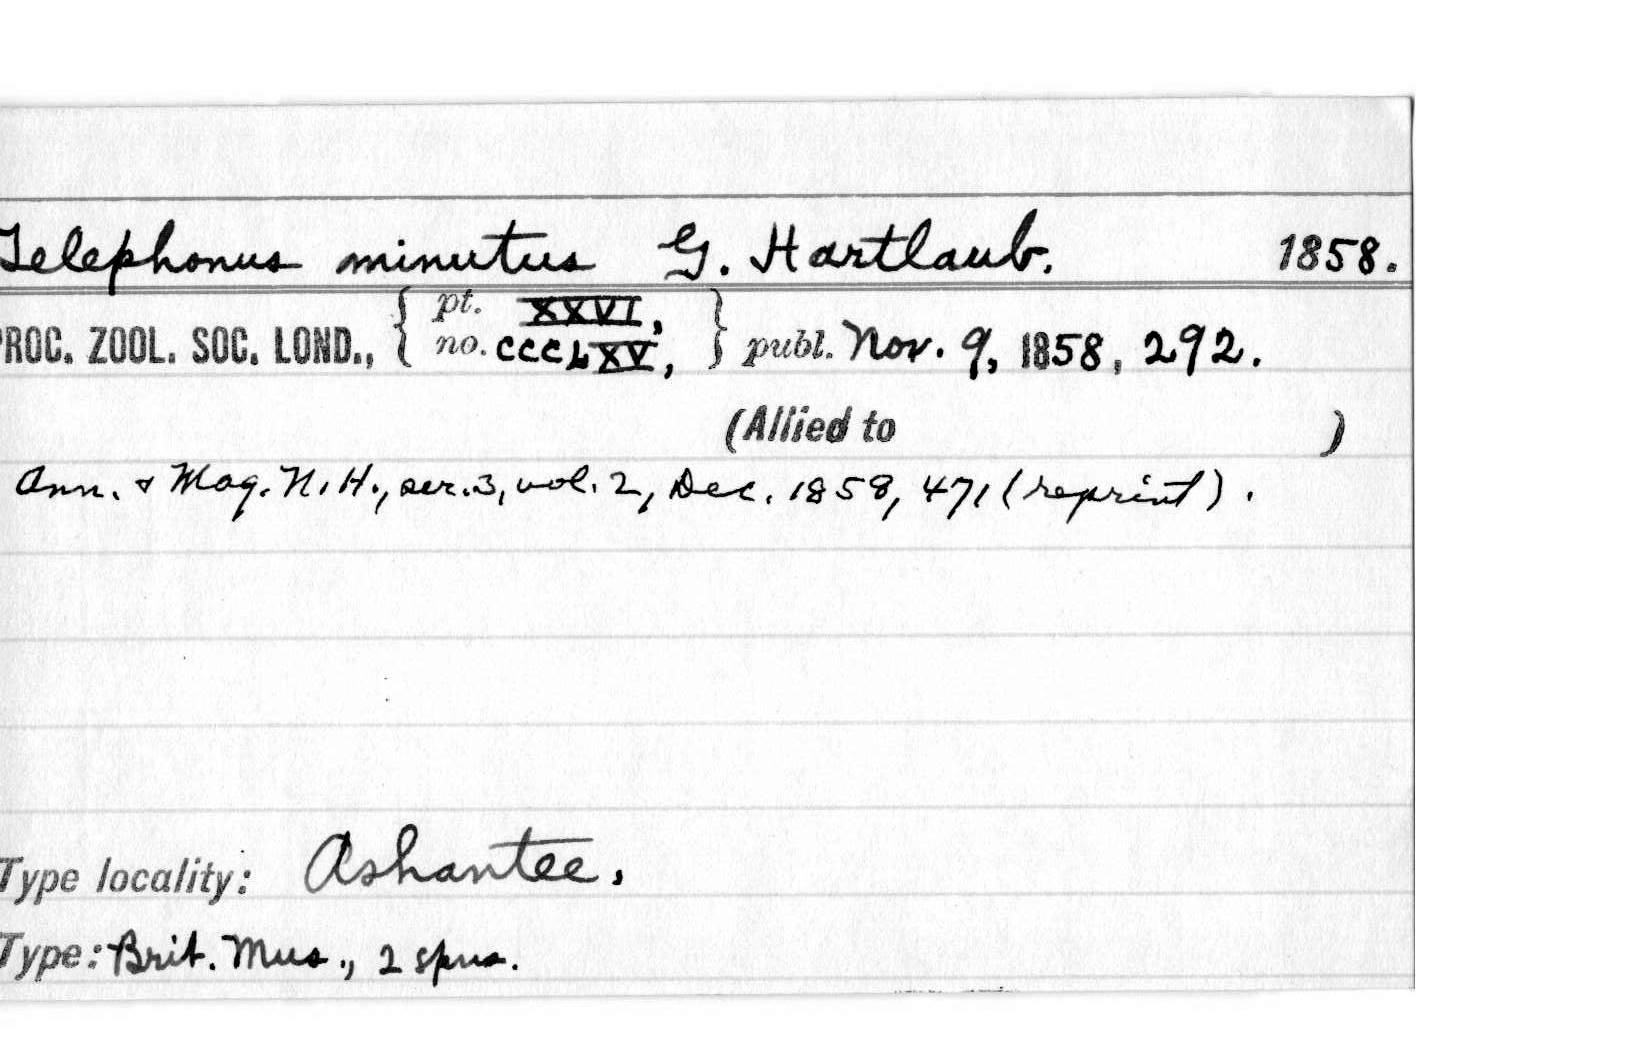 Telephonus minutus G. Hartlaub. 1858.
PROC. ZOOL. SOC. LOND., { pt. XXVI, no. CCCLXV, } publ. Nov. 9, 1858, 292.
(Allied to )
Ann. & Mag. N. H., ser. 3, vol. 2, Dec. 1858, 471 (reprint).
Type locality: Ashantee.
Type: Brit. Mus., 2 spns.